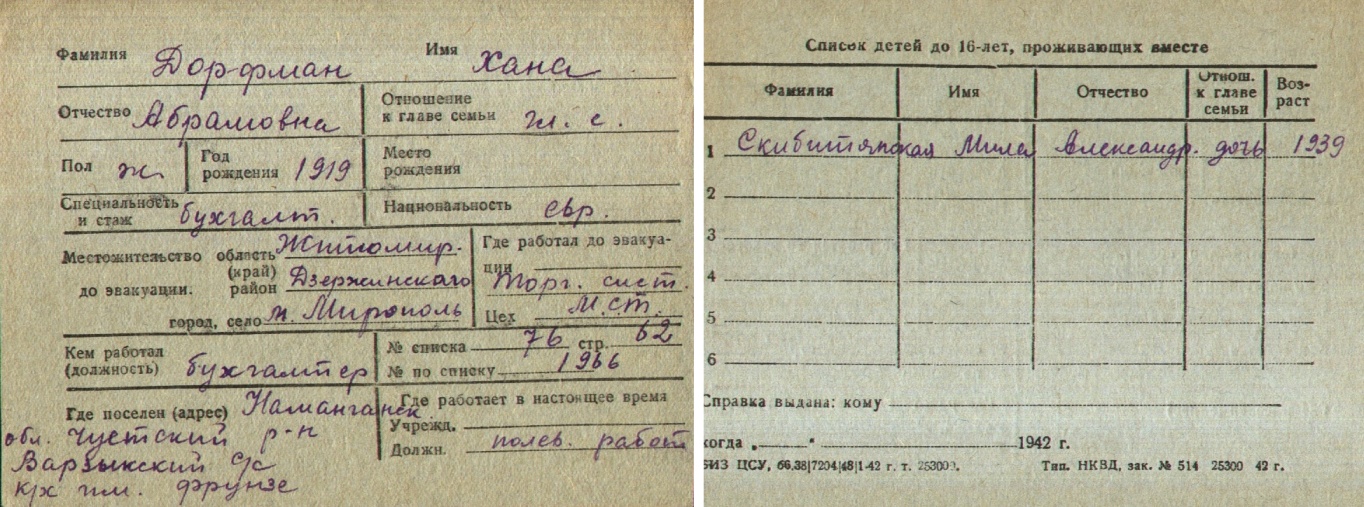 Фамилия Дорфман Имя Хана
Отчество Абрамовна Отношение к главе семьи гл. с.
Пол ж. Год рождения 1919 Место рождения
Специальность и стаж бухгалт. Национальность евр.
Местожительство до эвакуации. область (край) Житомир.
район Дзержинского
город, село м. Мирополь
Где работал до эвакуации Торг. сист.
Цех М.СТ.
Кем работал (должность) бухгалтер
№ списка 76 стр. 62
№ по списку 1966
Где поселен (адрес) Наманганск.
обл. Чустский р-н
Варзыкский с/с
к/х им. Фрунзе
Где работает в настоящее время
Учрежд.
Должн. полев. работ
Список детей до 16-лет, проживающих вместе
Фамилия Имя Отчество Отнош. к главе семьи Возраст
1 Мила Александр. дочь 1939
2
3
4
5
6
Справка выдана: кому
когда „ “ 1942 г.
ЦСУ, г. т. Тип. НКВД, зак. № 514 25300 42 г.